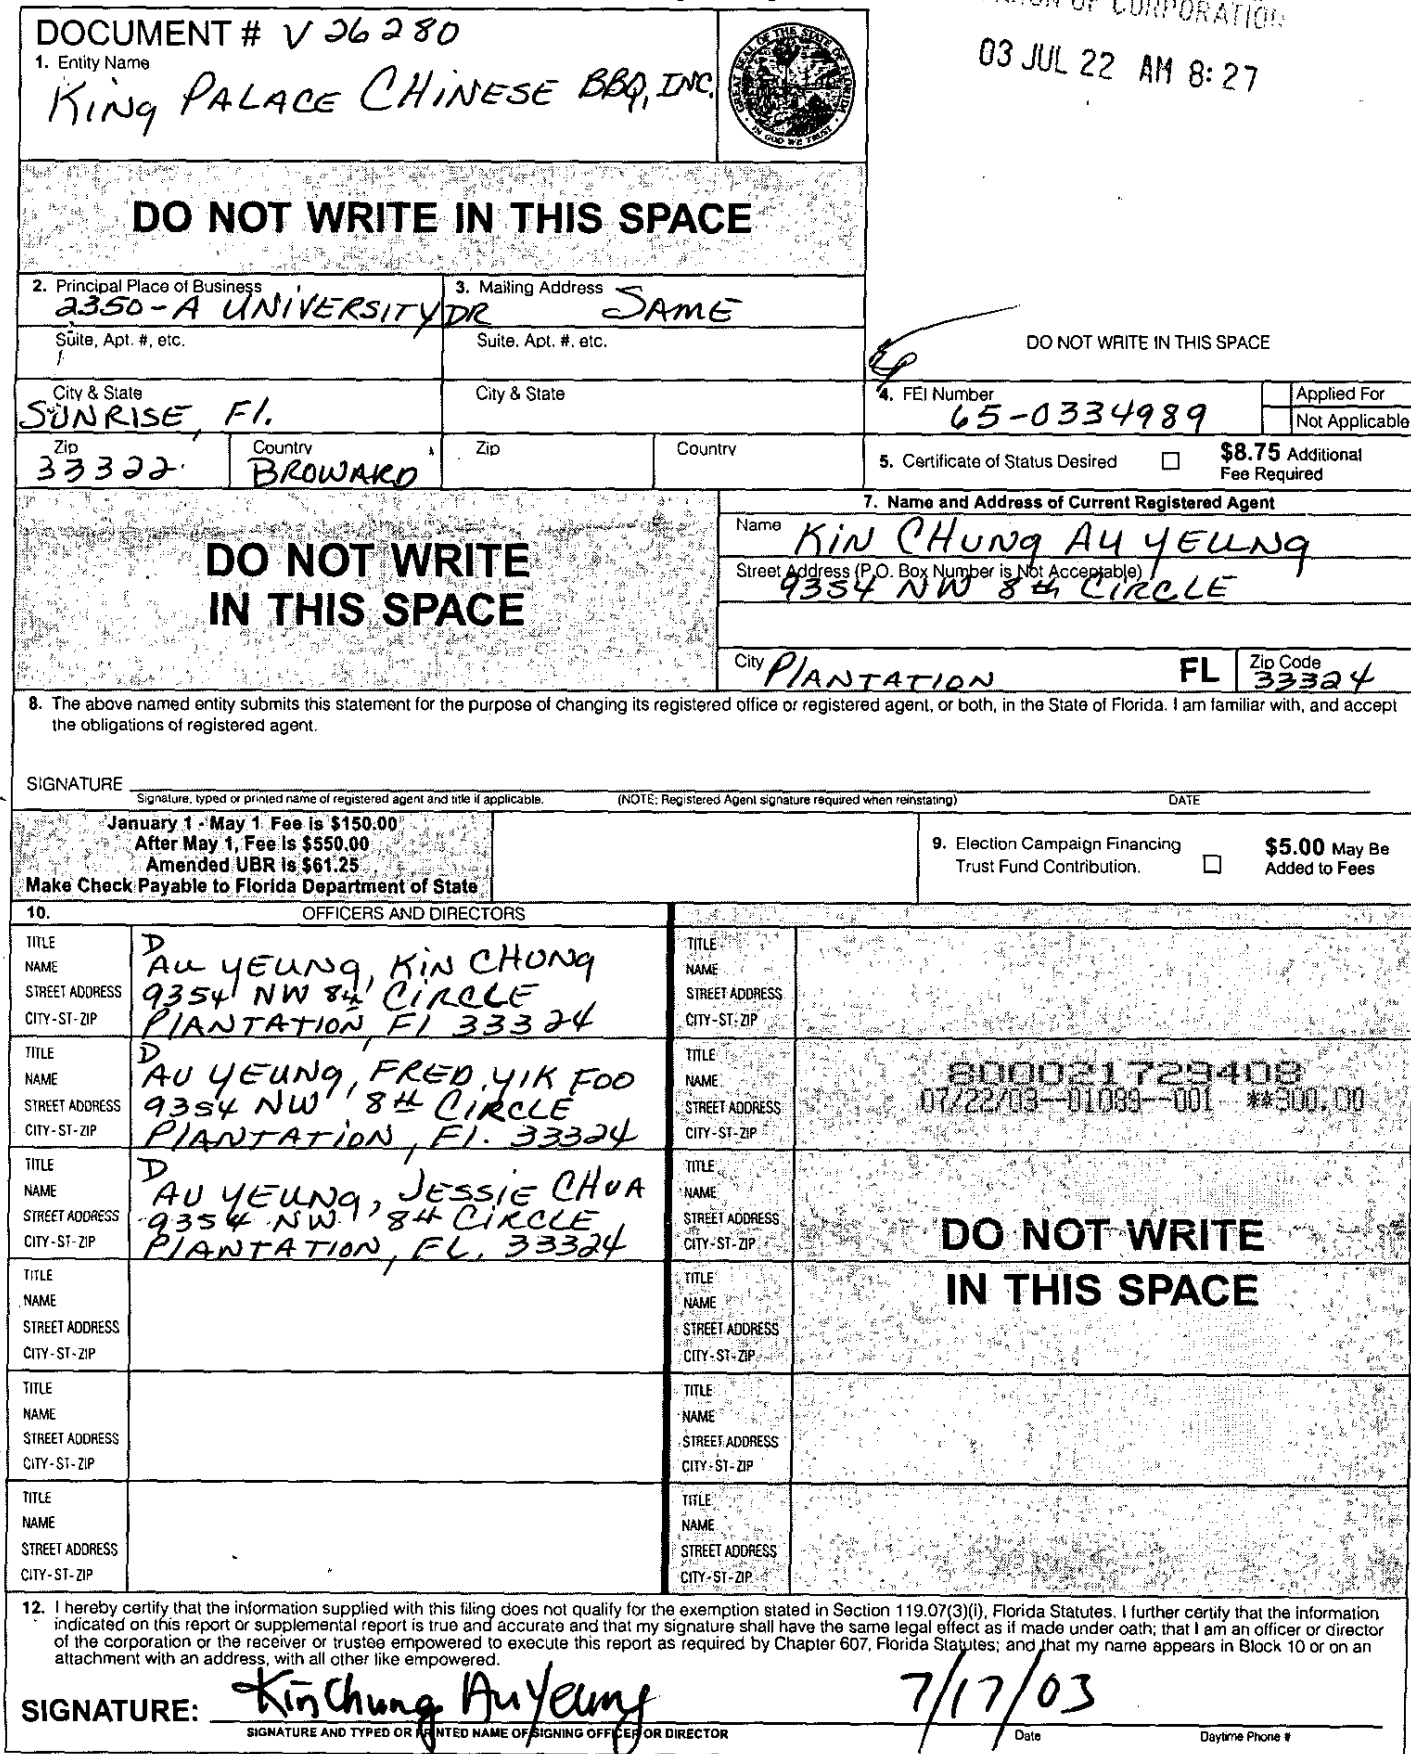 OF CORPORATION
03 JUL 22 AM 8:27
DOCUMENT # V26280
1. Entity Name
KING PALACE CHINESE BBQ, INC.
GREAT SEAL OF THE STATE OF FLORIDA
IN GOD WE TRUST
DO NOT WRITE IN THIS SPACE
2. Principal Place of Business
2350-A UNIVERSITY DR
3. Mailing Address
SAME
Suite, Apt. #, etc.
Suite, Apt. #, etc.
DO NOT WRITE IN THIS SPACE
City & State
SUNRISE, Fl.
City & State
4. FEI Number
65-0334989
Applied For
Not Applicable
Zip
33322
Country
BROWARD
Zip
Country
5. Certificate of Status Desired
$8.75 Additional
Fee Required
DO NOT WRITE
IN THIS SPACE
7. Name and Address of Current Registered Agent
Name
KIN CHUNG AU YEUNG
Street Address (P.O. Box Number is Not Acceptable)
9354 NW 8th CIRCLE
City
PLANTATION
FL
Zip Code
33324
8. The above named entity submits this statement for the purpose of changing its registered office or registered agent, or both, in the State of Florida. I am familiar with, and accept
the obligations of registered agent.
SIGNATURE
Signature, typed or printed name of registered agent and title if applicable.
(NOTE: Registered Agent signature required when reinstating)
DATE
January 1 - May 1 Fee is $150.00
After May 1, Fee is $550.00
Amended UBR is $61.25
Make Check Payable to Florida Department of State
9. Election Campaign Financing
Trust Fund Contribution.
$5.00 May Be
Added to Fees
10. OFFICERS AND DIRECTORS
TITLE D
NAME AU YEUNG, KIN CHUNG
STREET ADDRESS 9354 NW 8th CIRCLE
CITY-ST-ZIP PLANTATION, Fl 33324
TITLE
NAME
STREET ADDRESS
CITY-ST-ZIP
TITLE D
NAME AU YEUNG, FRED YIK FOO
STREET ADDRESS 9354 NW 8th CIRCLE
CITY-ST-ZIP PLANTATION, Fl. 33324
TITLE
NAME
STREET ADDRESS
CITY-ST-ZIP
800021729408
07/22/03--01089--001 **300.00
TITLE D
NAME AU YEUNG, JESSIE CHUA
STREET ADDRESS 9354 NW 8th CIRCLE
CITY-ST-ZIP PLANTATION, FL. 33324
TITLE
NAME
STREET ADDRESS
CITY-ST-ZIP
DO NOT WRITE
IN THIS SPACE
TITLE
NAME
STREET ADDRESS
CITY-ST-ZIP
TITLE
NAME
STREET ADDRESS
CITY-ST-ZIP
TITLE
NAME
STREET ADDRESS
CITY-ST-ZIP
TITLE
NAME
STREET ADDRESS
CITY-ST-ZIP
TITLE
NAME
STREET ADDRESS
CITY-ST-ZIP
TITLE
NAME
STREET ADDRESS
CITY-ST-ZIP
12. I hereby certify that the information supplied with this filing does not qualify for the exemption stated in Section 119.07(3)(i), Florida Statutes. I further certify that the information
indicated on this report or supplemental report is true and accurate and that my signature shall have the same legal effect as if made under oath; that I am an officer or director
of the corporation or the receiver or trustee empowered to execute this report as required by Chapter 607, Florida Statutes; and that my name appears in Block 10 or on an
attachment with an address, with all other like empowered.
SIGNATURE: Kin Chung Au Yeung 7/17/03
SIGNATURE AND TYPED OR PRINTED NAME OF SIGNING OFFICER OR DIRECTOR
Date
Daytime Phone #